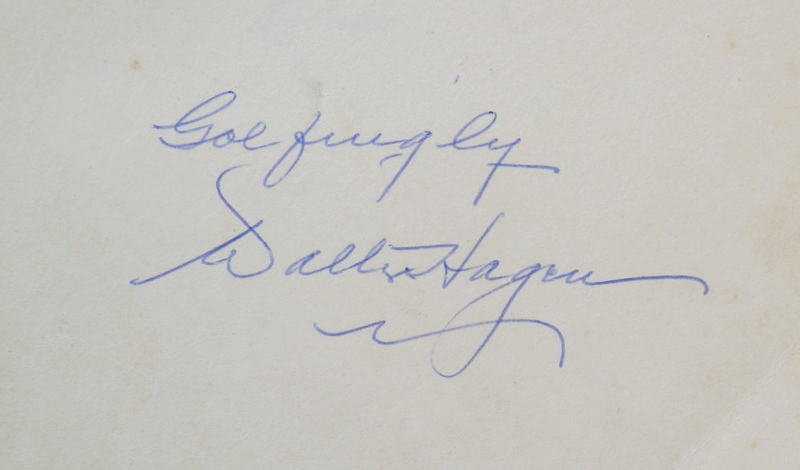 Golfingly
Walter Hagen